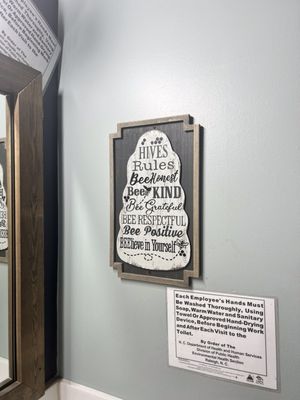 HIVES
Rules
Bee Honest
Bee KIND
Bee Grateful
BEE RESPECTFUL
Bee Positive
BEElieve in Yourself
Each Employee's Hands Must
Be Washed Thoroughly, Using
Soap, Warm Water and Sanitary
Towel Or Approved Hand-Drying
Device, Before Beginning Work
and After Each Visit to the
Toilet.
By Order of The
N. C. Department of Health and Human Services
Division of Public Health
Environmental Health Section
Raleigh, N. C.